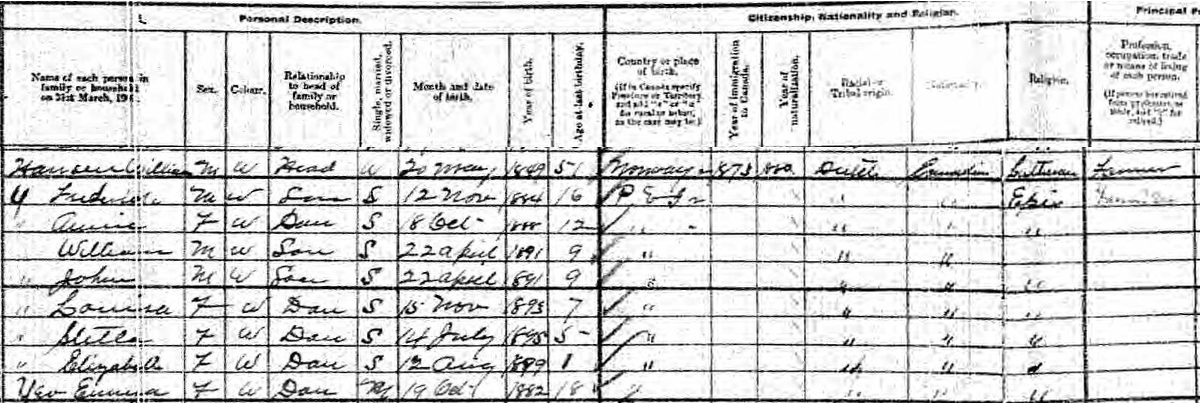 Personal Description. Citizenship, Nationality and Religion. Principal
Name of each person in family or household on 31st March, Sex. Colour. Relationship to head of family or household. Single, married, widowed or divorced. Month and date of birth. Year of birth. Age at last birthday. Country or place of birth. (If in Canada specify Province or Territory, and add "r" or "u" for rural or urban, as the case may be.) Year of immigration to Canada. Year of naturalization. Racial or Tribal origin. Nationality. Religion. Profession, occupation, trade or means of living of each person.
Hansen William M W Head W 20 May 1849 51 Norway 1873 Dutch Canadian Lutheran Farmer
" Frederick M W Son S 12 Nov 1884 16 P E I r " " Epis
" Annie F W Dau S 18 Oct 1888 12 " " " "
William M W Son S 22 april 1891 9 " " "
" John M W Son S 22 april 1891 9 " " " "
" Louisa F W Dau S 15 Nov 1893 7 " " " "
" Stella F W Dau S 14 July 1895 5 " " " "
" Elizabth F W Dau S 12 Aug 1899 1 " " " "
Yeo Emma F W Dau M 19 Oct 1882 18 " " " "